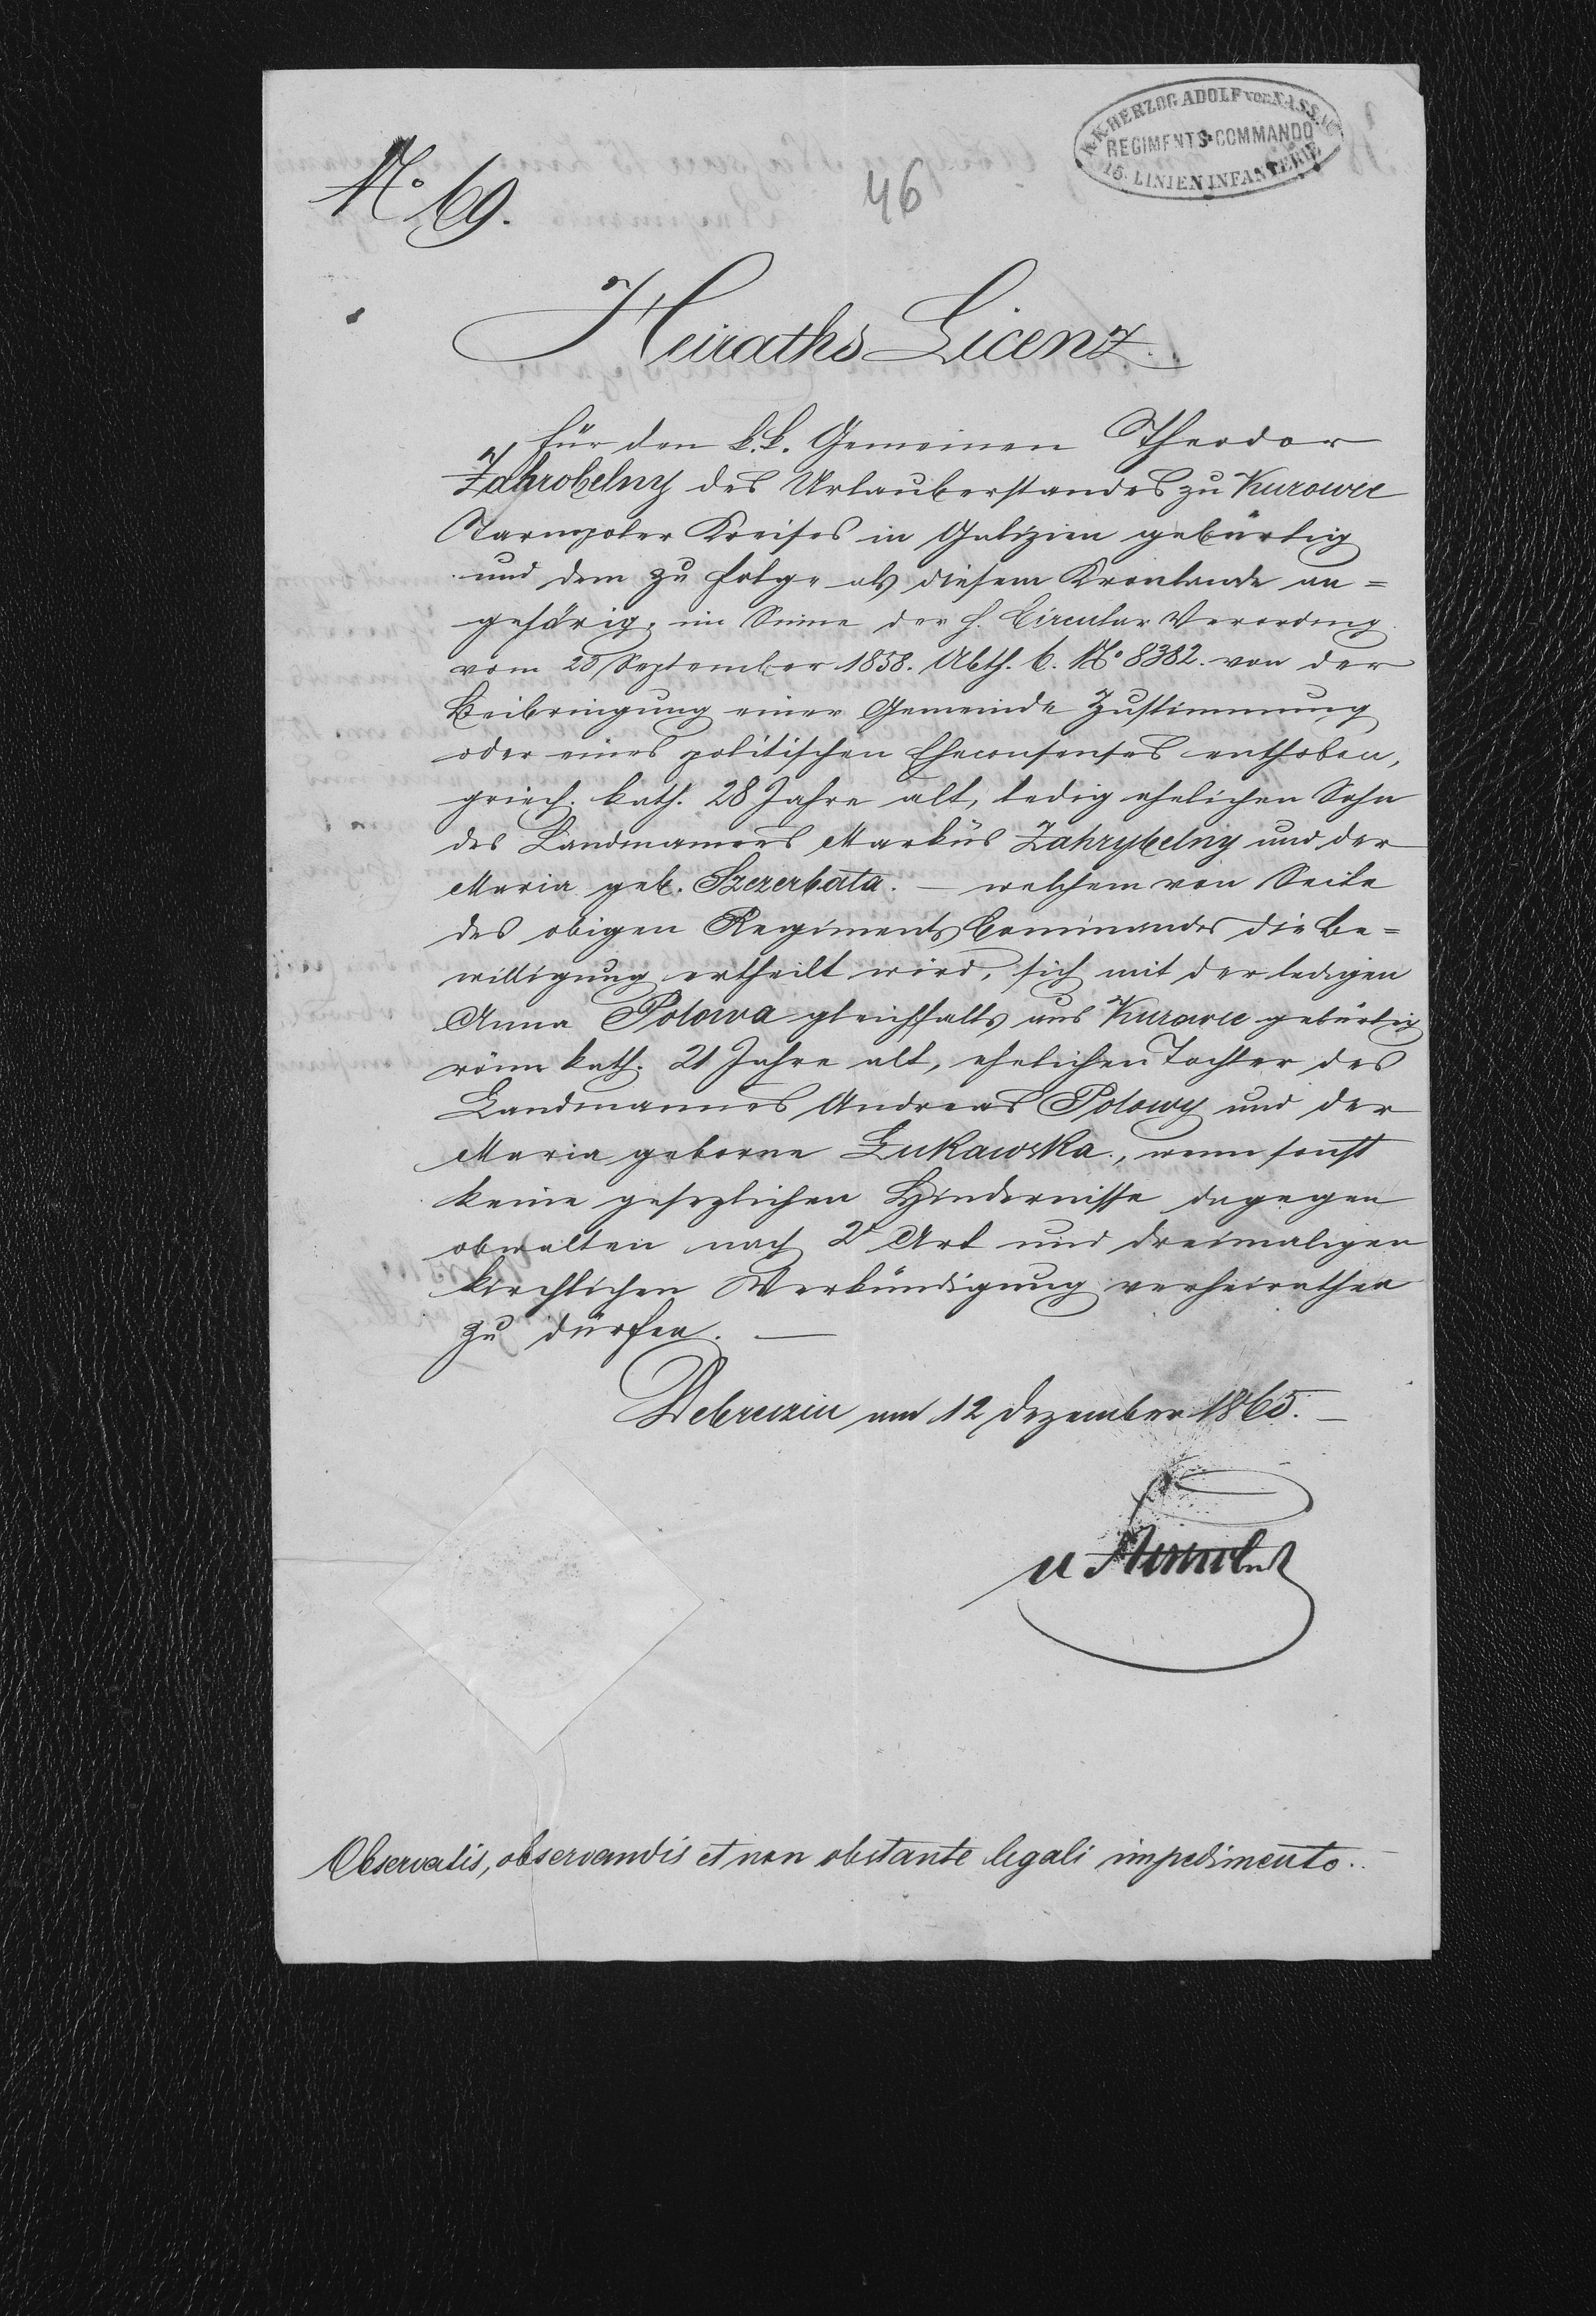 K.K. HERZOG ADOLF VON NASSAU
REGIMENTS-COMMANDO
15. LINIEN INFANTERIE
No 69.
46
Heiraths Licenz.
für den k.k. Gemeinen Theodor
Zahrobelny des Urlauberstandes zu Kurowce
Tarnopoler Kreises in Galizien gebürtig
und dem zu folge als diesem Kronlande an=
gehörig, im Sinne der h. Circular Verordng
vom 25 September 1858. Abth. 6. No 8382. von der
Beibringung einer Gemeinde Zustimmung
oder eines politischen Eheconsenses enthoben,
griech. kath. 28 Jahre alt, ledig ehelichen Sohn
des Landmannes Markus Zahrybelny und der
Maria geb. Szczerbata. — welchem von Seite
des obigen Regiments Commandos die Be=
willigung ertheilt wird, sich mit der ledigen
Anna Polowa gleichfalls aus Kurowce gebürtig
röm kath. 21 Jahre alt, ehelichen Tochter des
Landmannes Andreas Polowy und der
Maria geborne Lukawska, wenn sonst
keine gesezlichen Hindernisse dagegen
obwalten nach 2r Art und dreimaligen
kirchlichen Verkündigung verheirathen
zu dürfen. —
Debreczin am 12 Dezember 1865. —
Observatis, observandis et non obstante legali impedimento.